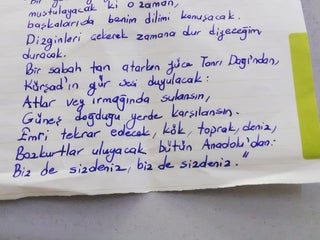 muştulayacak ki o zaman,
başkalarıda benim dilimi konuşacak.
Dizginleri çekerek zamana dur diyeceğim,
duracak.
Bir sabah tan atarken yüce Tanrı Dağı'ndan,
Kürşad'ın gür sesi duyulacak:
Atlar vey ırmağında sulansın,
Güneş doğduğu yerde karşılansın.
Emri tekrar edecek, kök, toprak, deniz,
Bozkurtlar uluyacak bütün Anadolu'dan:
Biz de sizdeniz, biz de sizdeniz."